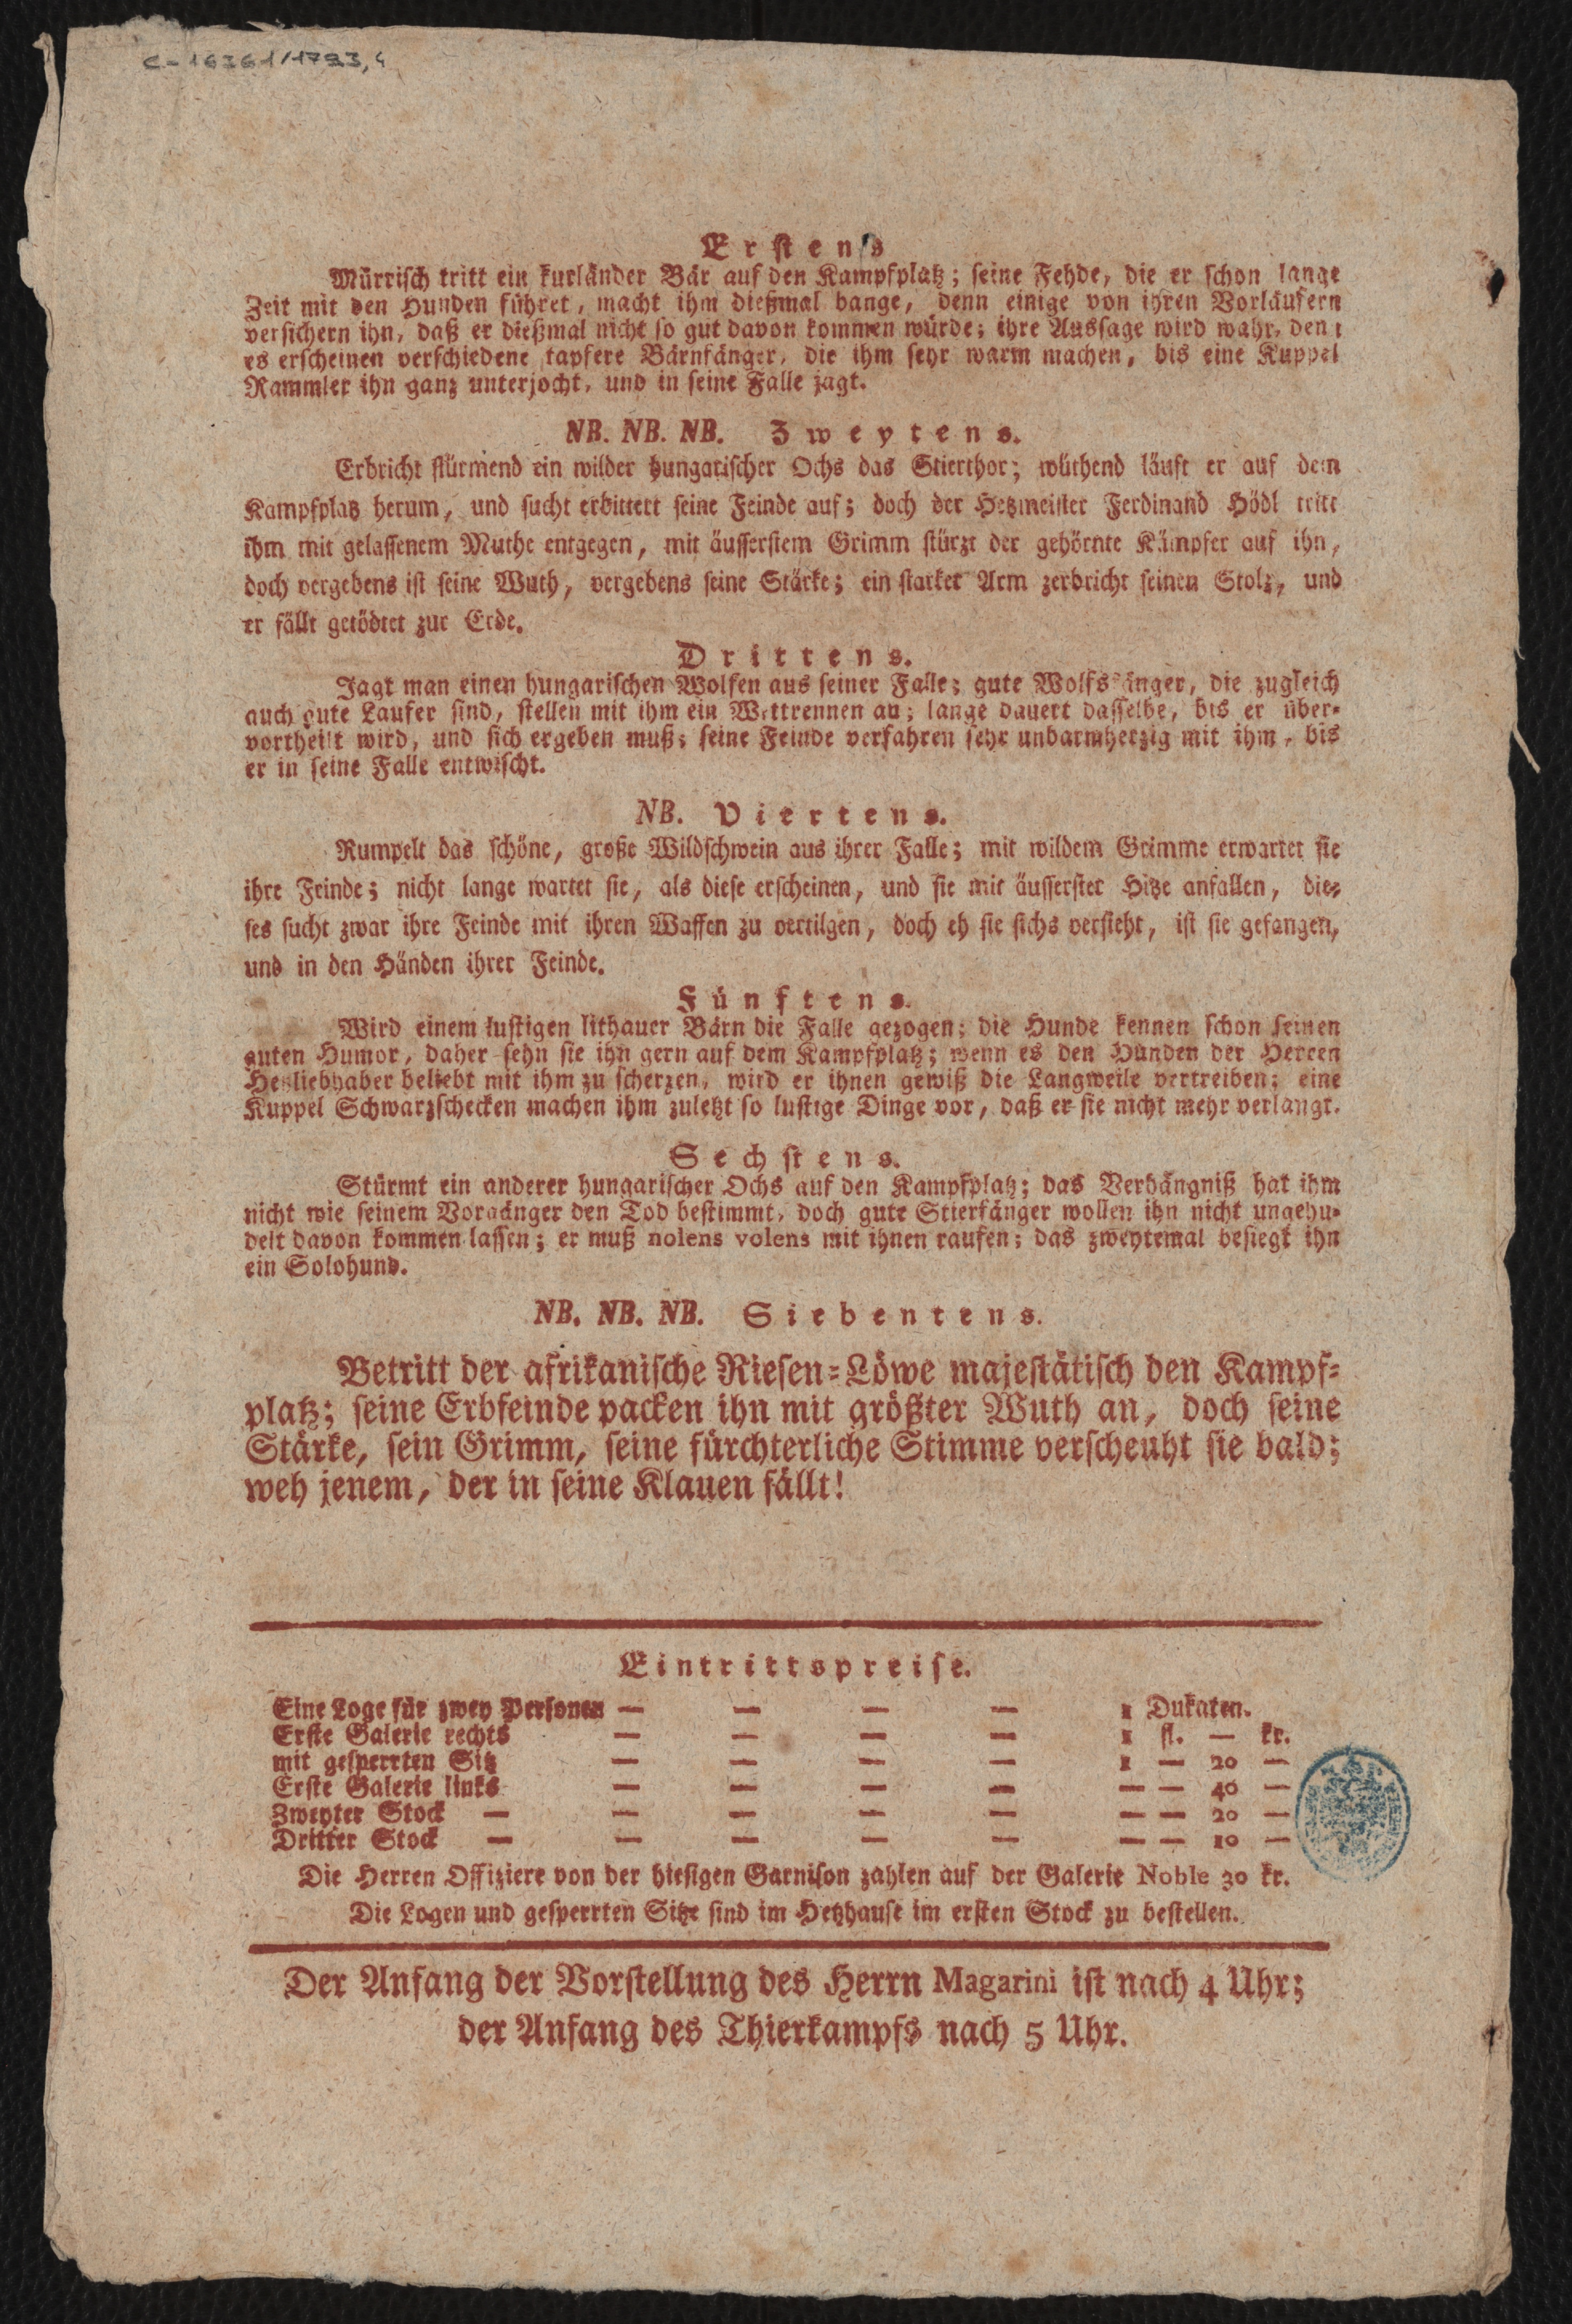 C-16361/1793,4
Erstens
Mürrisch tritt ein kurländer Bär auf den Kampfplatz; seine Fehde, die er schon lange
Zeit mit den Hunden führet, macht ihm dießmal bange, denn einige von ihren Vorläufern
versichern ihn, daß er dießmal nicht so gut davon kommen würde; ihre Aussage wird wahr, den
es erscheinen verschiedene tapfere Bärnfänger, die ihm sehr warm machen, bis eine Kuppel
Rammler ihn ganz unterjocht, und in seine Falle jagt.
NB. NB. NB. Zweytens.
Erbricht stürmend ein wilder hungarischer Ochs das Stierthor; wüthend läuft er auf dem
Kampfplatz herum, und sucht erbittert seine Feinde auf; doch der Hetzmeister Ferdinand Hödl tritt
ihm mit gelassenem Muthe entgegen, mit äusserstem Grimm stürzt der gehörnte Kämpfer auf ihn,
doch vergebens ist seine Wuth, vergebens seine Stärke; ein starker Arm zerbricht seinen Stolz, und
er fällt getödtet zur Erde.
Drittens.
Jagt man einen hungarischen Wolfen aus seiner Falle; gute Wolfsfänger, die zugleich
auch gute Laufer sind, stellen mit ihm ein Wettrennen an; lange dauert dasselbe, bis er über-
vortheilt wird, und sich ergeben muß; seine Feinde verfahren sehr unbarmherzig mit ihm, bis
er in seine Falle entwischt.
NB. Viertens.
Rumpelt das schöne, große Wildschwein aus ihrer Falle; mit wildem Grimme erwartet sie
ihre Feinde; nicht lange wartet sie, als diese erscheinen, und sie mit äusserster Hitze anfallen, die-
ses sucht zwar ihre Feinde mit ihren Waffen zu vertilgen, doch eh sie sichs versieht, ist sie gefangen,
und in den Händen ihrer Feinde.
Fünftens.
Wird einem lustigen lithauer Bärn die Falle gezogen; die Hunde kennen schon seinen
guten Humor, daher sehn sie ihn gern auf dem Kampfplatz; wenn es den Hunden der Herren
Hetzliebhaber beliebt mit ihm zu scherzen, wird er ihnen gewiß die Langweile vertreiben; eine
Kuppel Schwarzschecken machen ihm zuletzt so lustige Dinge vor, daß er sie nicht mehr verlangt.
Sechstens.
Stürmt ein anderer hungarischer Ochs auf den Kampfplatz; das Verhängniß hat ihm
nicht wie seinem Vorgänger den Tod bestimmt, doch gute Stierfänger wollen ihn nicht ungehu-
delt davon kommen lassen; er muß nolens volens mit ihnen raufen; das zweytemal besiegt ihn
ein Solohund.
NB. NB. NB. Siebentens.
Betritt der afrikanische Riesen-Löwe majestätisch den Kampf-
platz; seine Erbfeinde packen ihn mit größter Wuth an, doch seine
Stärke, sein Grimm, seine fürchterliche Stimme verscheuht sie bald;
weh jenem, der in seine Klauen fällt!
Eintrittspreise.
Eine Loge für zwey Personen — — — — 1 Dukaten.
Erste Galerie rechts — — — — 1 fl. — kr.
mit gesperrten Sitz — — — — 1 — 20 —
Erste Galerie links — — — — — — 40 —
Zweyter Stock — — — — — — — 20 —
Dritter Stock — — — — — — — 10 —
Die Herren Offiziere von der hiesigen Garnison zahlen auf der Galerie Noble 30 kr.
Die Logen und gesperrten Sitze sind im Hetzhause im ersten Stock zu bestellen.
Der Anfang der Vorstellung des Herrn Magarini ist nach 4 Uhr;
der Anfang des Thierkampfs nach 5 Uhr.